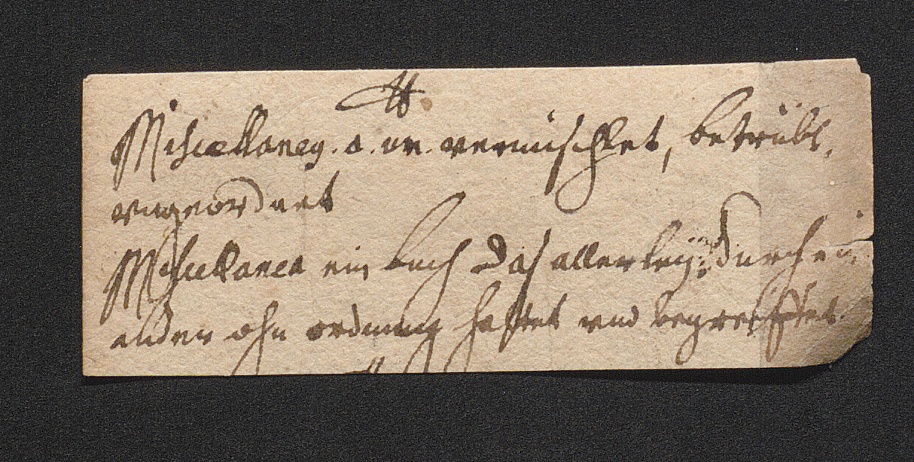 Miscellaney. a. um. vermischet, betrübt,
vngeordnet
Miscellanea ein buch das allerley durch ein
ander ohn ordnung haltet vnd begreiffet.